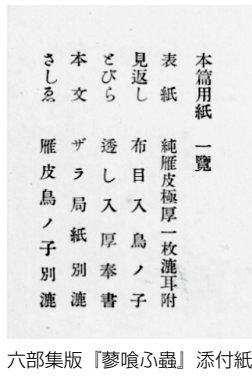 本篇用紙一覽
表紙 純雁皮極厚一枚漉耳附
見返し 布目入鳥ノ子
とびら 透し入厚奉書
本文 ザラ局紙別漉
さしゑ 雁皮鳥ノ子別漉
六部集版『蓼喰ふ蟲』添付紙